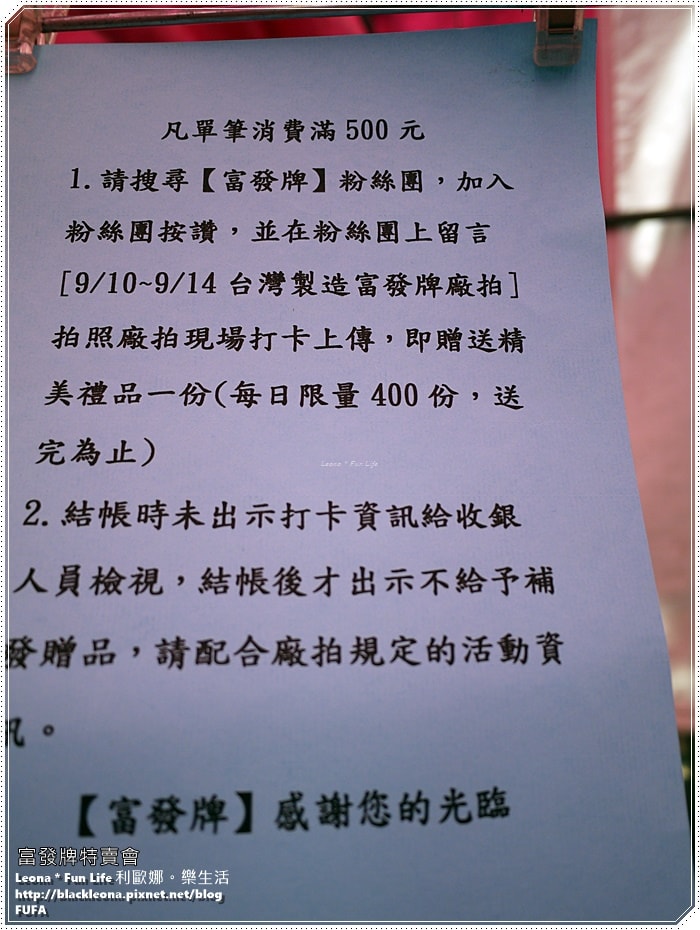 凡單筆消費滿 500 元
1. 請搜尋【富發牌】粉絲團，加入
粉絲團按讚，並在粉絲團上留言
[9/10~9/14 台灣製造富發牌廠拍]
拍照廠拍現場打卡上傳，即贈送精
美禮品一份(每日限量 400 份，送
完為止)
Leona * Fun Life
2. 結帳時未出示打卡資訊給收銀
人員檢視，結帳後才出示不給予補
發贈品，請配合廠拍規定的活動資
訊。
【富發牌】感謝您的光臨
富發牌特賣會
Leona * Fun Life 利歐娜。樂生活
http://blackleona.pixnet.net/blog
FUFA